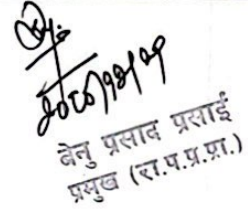 बेनु प्रसाद प्रसाई
प्रमुख (रा.प.प्र.प्रा.)